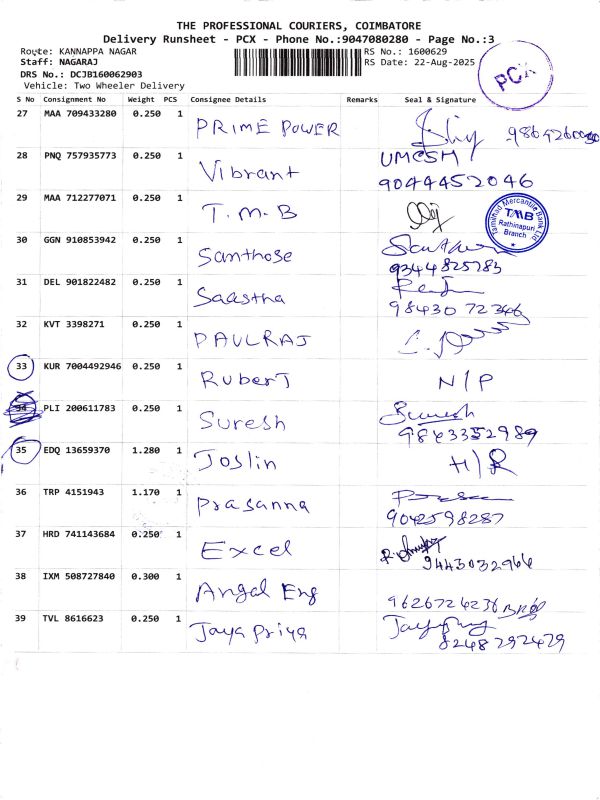 THE PROFESSIONAL COURIERS, COIMBATORE
Delivery Runsheet - PCX - Phone No.:9047080280 - Page No.:3
Route: KANNAPPA NAGAR RS No.: 1600629
Staff: NAGARAJ RS Date: 22-Aug-2025
DRS No.: DCJB160062903
Vehicle: Two Wheeler Delivery
PCX
S No Consignment No Weight PCS Consignee Details Remarks Seal & Signature
27 MAA 709433280 0.250 1 PRIME POWER
28 PNQ 757935773 0.250 1 Vibrant UMESH
9044452046
29 MAA 712277071 0.250 1 T.M.B
Tamilnad Mercantile Bank Ltd
TMB
Rathinapuri
Branch
30 GGN 910853942 0.250 1 Santhose
9344825783
31 DEL 901822482 0.250 1 Saastha
98430 72346
32 KVT 3398271 0.250 1 PAULRAJ
33 KUR 7004492946 0.250 1 RuberT N/P
34 PLI 200611783 0.250 1 Suresh Suresh
9843352989
35 EDQ 13659370 1.280 1 Joslin
36 TRP 4151943 1.170 1 Prasanna
9042598287
37 HRD 741143684 0.250 1 Excel
9443032966
38 IXM 508727840 0.300 1 Angal Eng
9626726236
39 TVL 8616623 0.250 1 Jaya Priya
8248792479